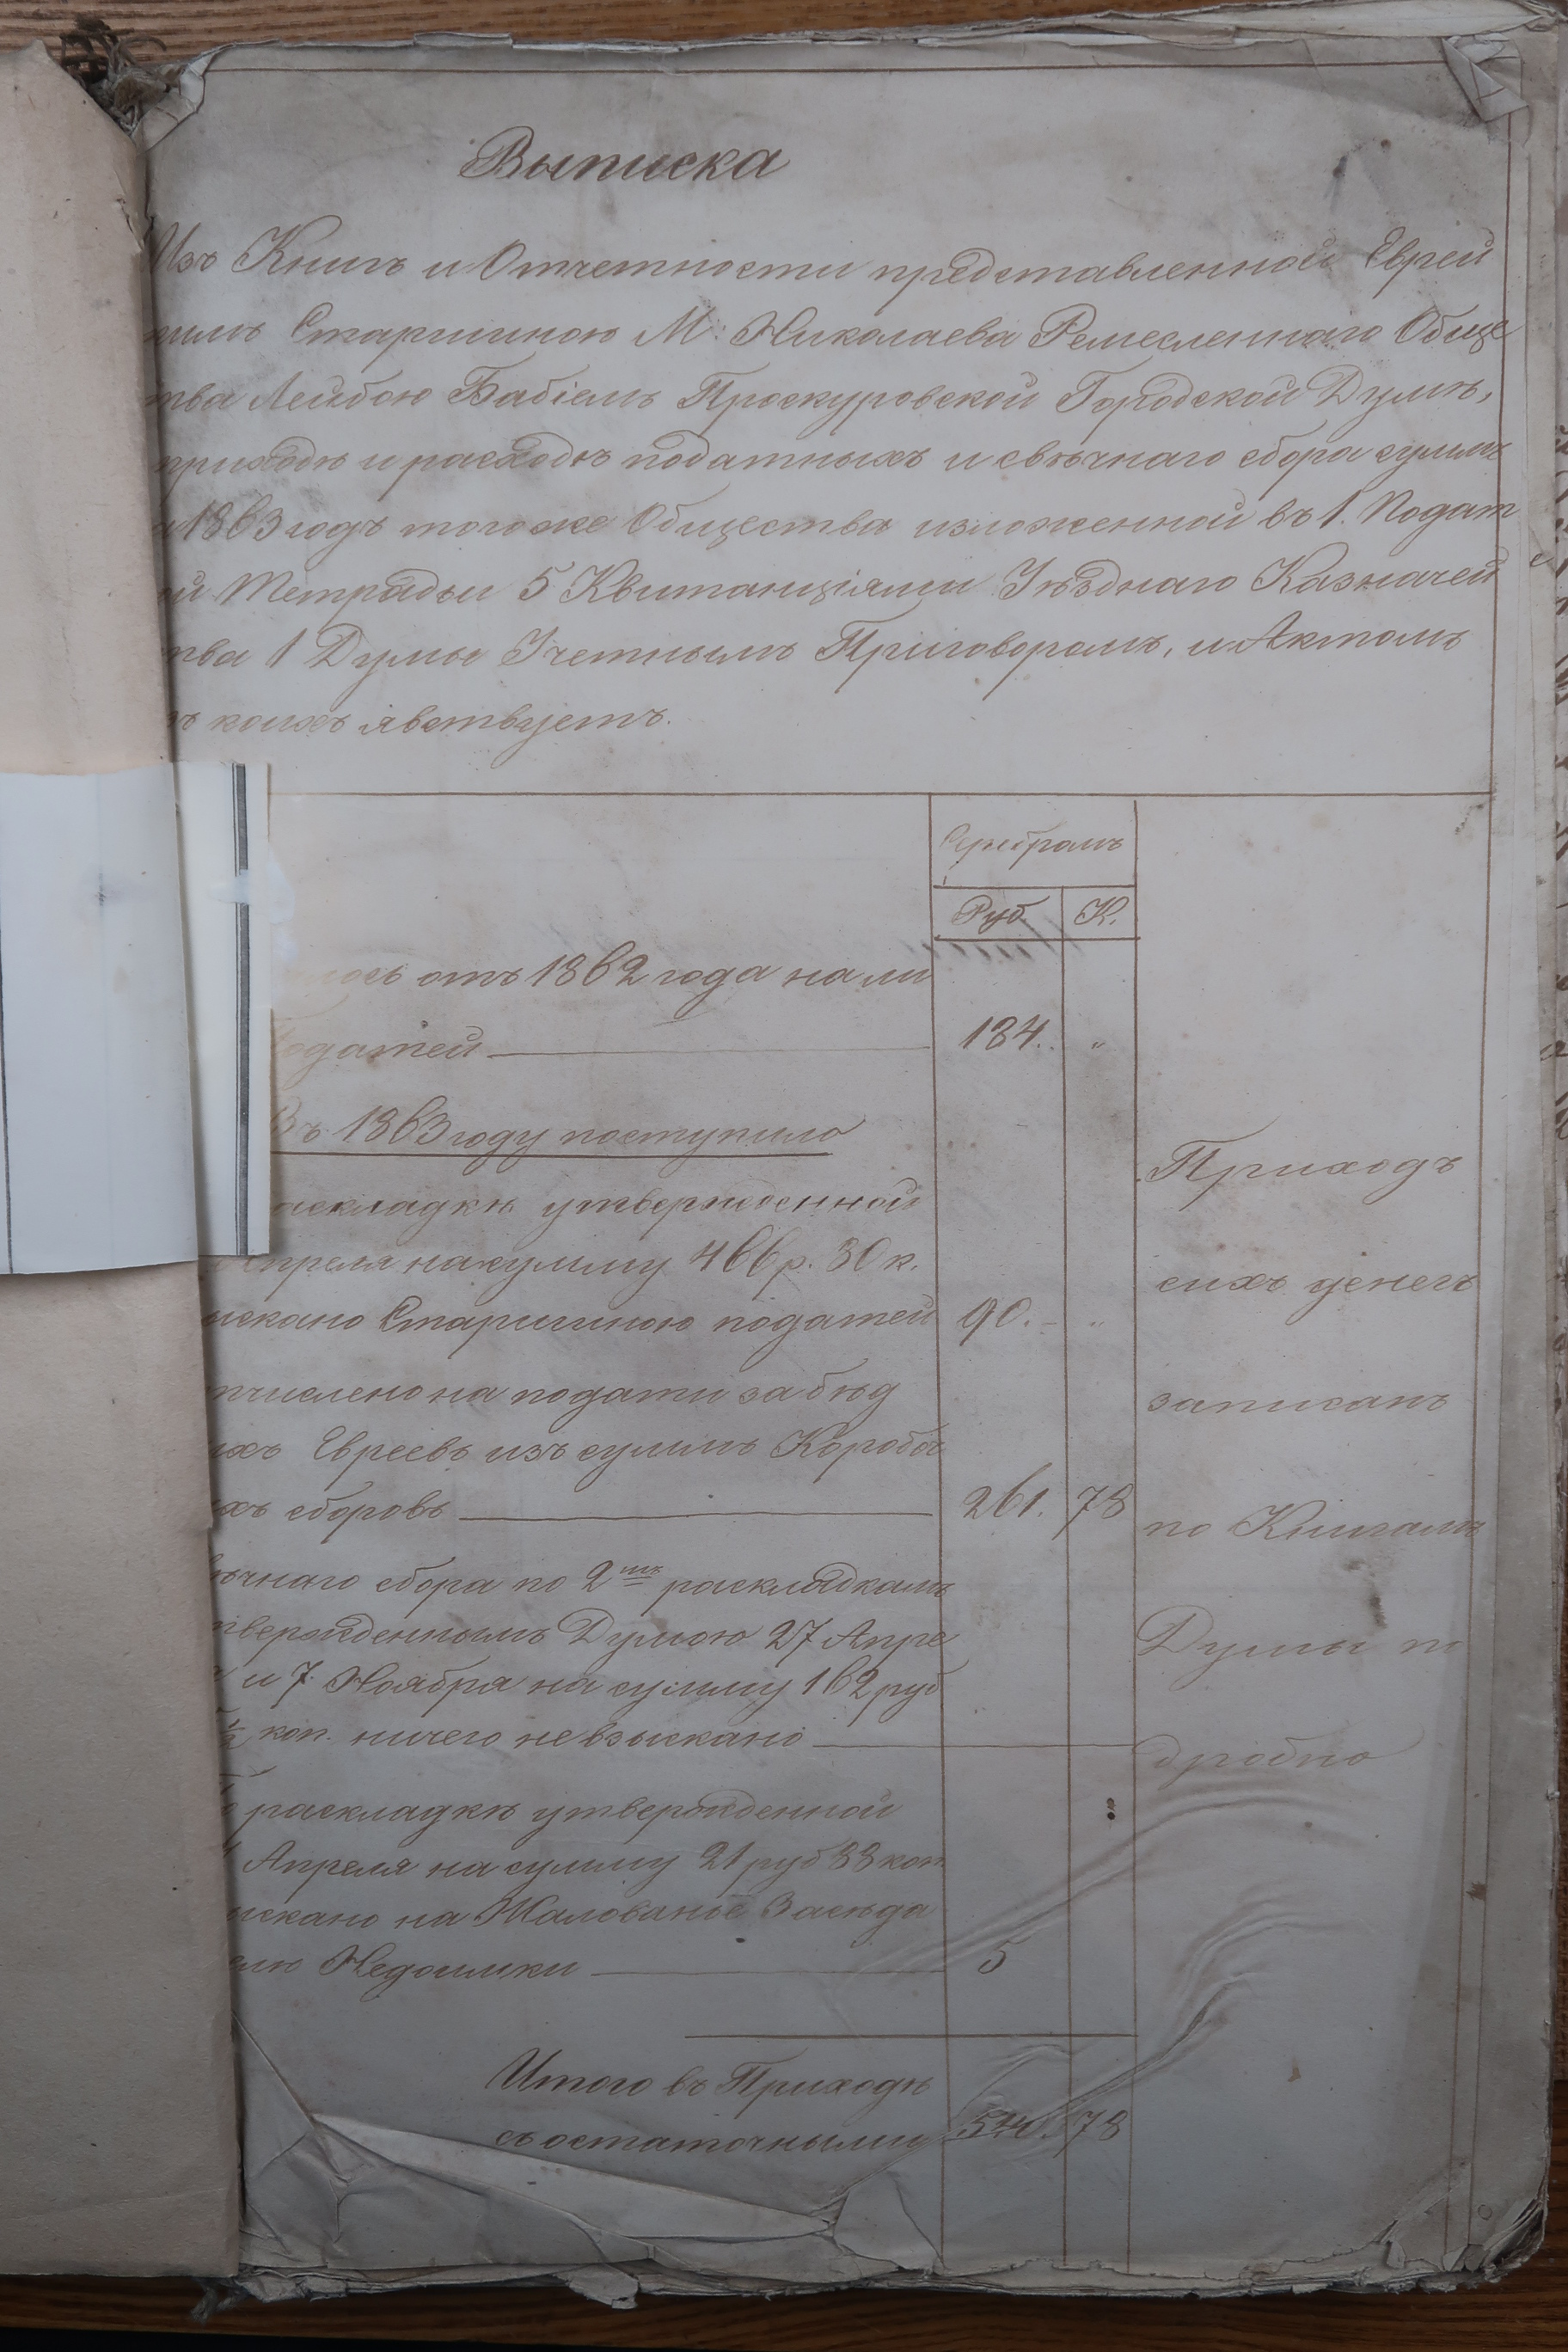 Выписка
Изъ Книгъ и Отчетности представленной Еврей
Старшиною М: Николаева Ремесленнаго Обще
тва Лейбою Бабіемъ Проскуровской Городской Думѣ,
приходѣ и расходѣ податныхъ и свѣчнаго сбора суммъ
1863 годъ тогоже Общества изложенной въ 1. Подат
ой Тетрадьи 5 Квитанціями Уѣзднаго Казначей
тва 1 Думы Учетнымъ Приговоромъ, и Актомъ
зъ коихъ явствуетъ.
Серебромъ
Руб. К.
лось отъ 1862 года нали
податей 184. "
Въ 1863 году поступило
аскладкѣ утвержденной
Апреля на сумму 466 р. 30 к.
ыскано Старшиною податей 90. "
тчислено на подати за бѣд
ыхъ Евреевъ изъ суммъ Коробоч
ыхъ сборовъ 261. 78
ѣчнаго сбора по 2мъ раскладкамъ
твержденнымъ Думою 27 Апре
и 7 Ноября на сумму 162 руб
½ коп. ничего не взыскано
раскладкѣ утвержденной
Апреля на сумму 21 руб 88 коп
ыскано на Жалованье Засѣда
елю Недоимки 5
Итого въ Приходѣ
съ остаточными 540. 78
Приходъ
сихъ денегъ
записанъ
по Книгамъ
Думы по
дробно